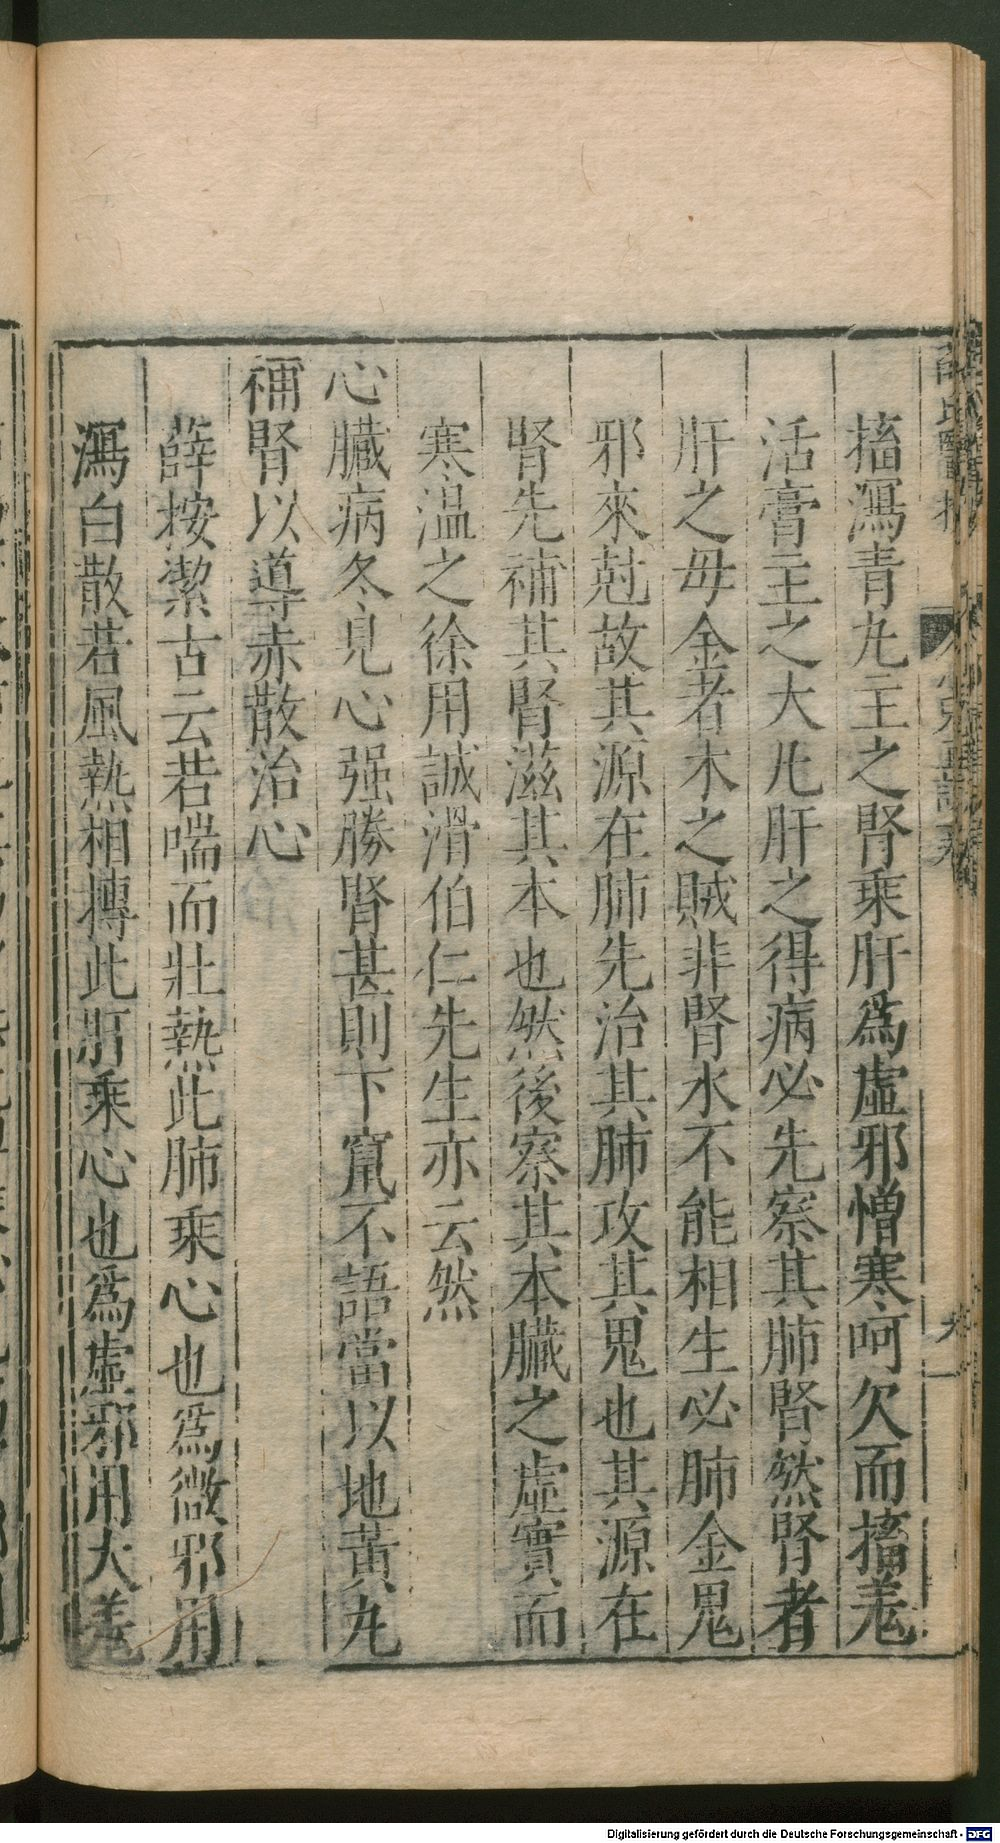 搐瀉青丸主之腎乗肝爲虛邪憎寒呵欠而搐羗
活膏主之大凡肝之得病必先察其肺腎然腎者
肝之毋金者木之賊非腎水不能相生必肺金鬼
邪來尅故其源在肺先治其肺攻其鬼也其源在
腎先補其腎滋其本也然後察其本臟之虛實而
寒温之徐用誠滑伯仁先生亦云然
心臟病冬見心强勝腎甚則下竄不語當以地黃丸
補腎以導赤散治心
薛按潔古云若喘而壯熱此肺乗心也爲微邪用
瀉白散若風熱相摶此肝乗心也爲虛邪用大羗
Digitalisierung gefördert durch die Deutsche Forschungsgemeinschaft - DFG